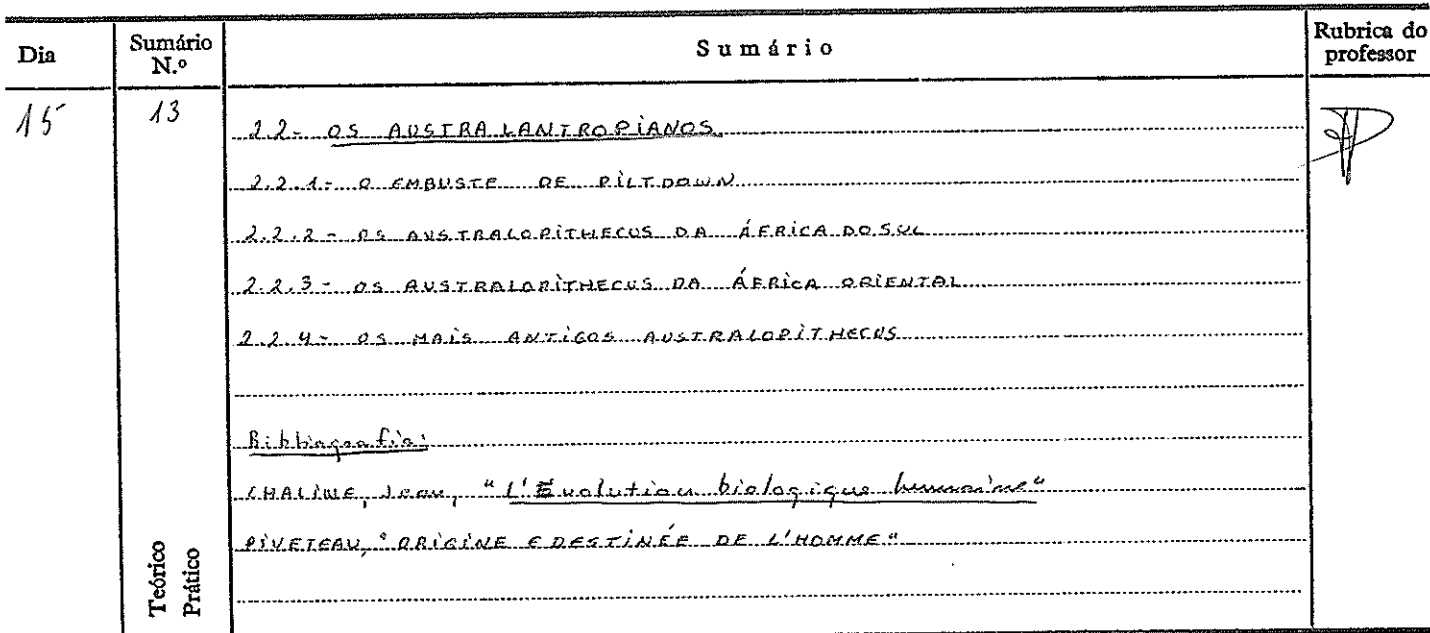 Dia Sumário N.º Sumário Rubrica do professor
15 13 2.2- OS AUSTRALANTROPIANOS
2.2.1- O EMBUSTE DE PILTDOWN
2.2.2- OS AUSTRALOPITHECUS DA ÁFRICA DO SUL
2.2.3- OS AUSTRALOPITHECUS DA ÁFRICA ORIENTAL
2.2.4- OS MAIS ANTIGOS AUSTRALOPITHECUS
Bibliografia:
CHALINE, Jean, "L'Evolution biologique humaine"
PIVETEAU, "ORIGINE E DESTINÉE DE L'HOMME"
Teórico
Prático